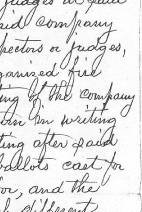 judges at said
said company
pectors or judges,
ganized five
ing of the company
in writing
ting after said
ballots cast for
or, and the
different